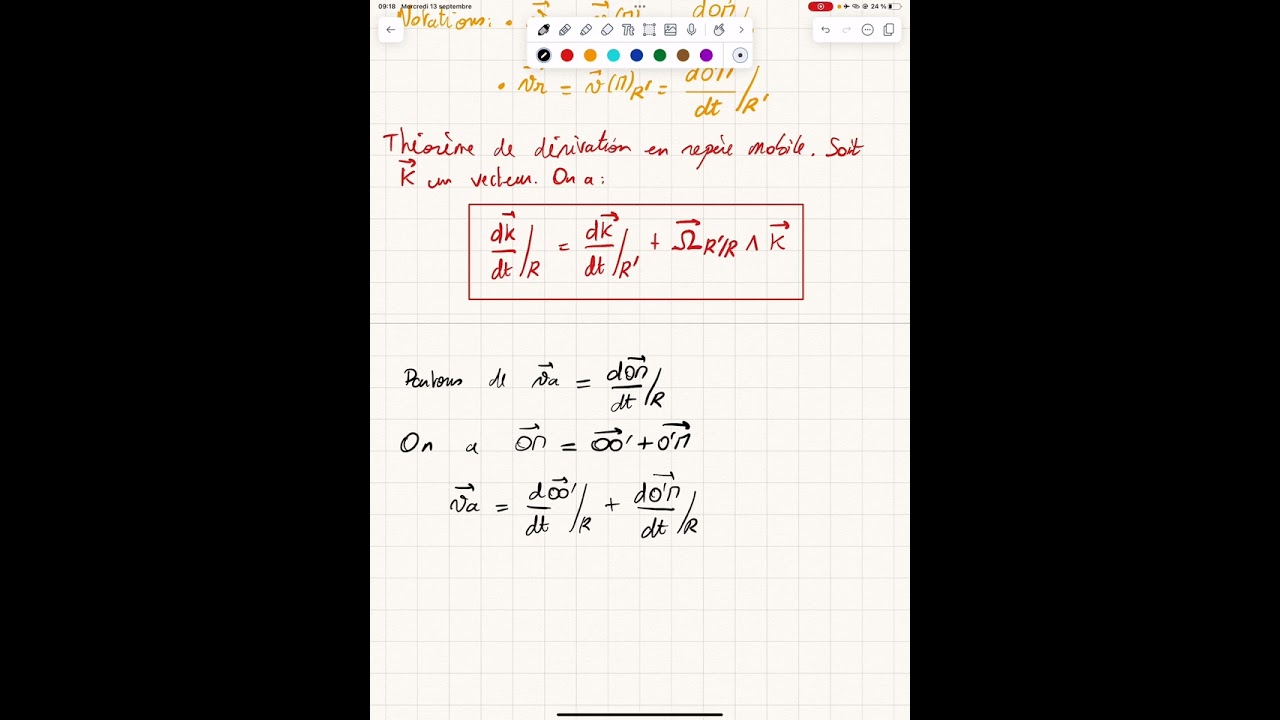 09:18 Mercredi 13 septembre 24 %
Notations: • v⃗ v⃗(M) dOM⃗
Tt
• v⃗r = v⃗(M)R' = dOM⃗/dt /R'
Théorème de dérivation en repère mobile. Soit
K⃗ un vecteur. On a :
dK⃗/dt /R = dK⃗/dt /R' + Ω⃗R'/R ∧ K⃗
Partons de v⃗a = dOM⃗/dt /R
On a OM⃗ = OO'⃗ + O'M⃗
v⃗a = dOO'⃗/dt /R + dO'M⃗/dt /R